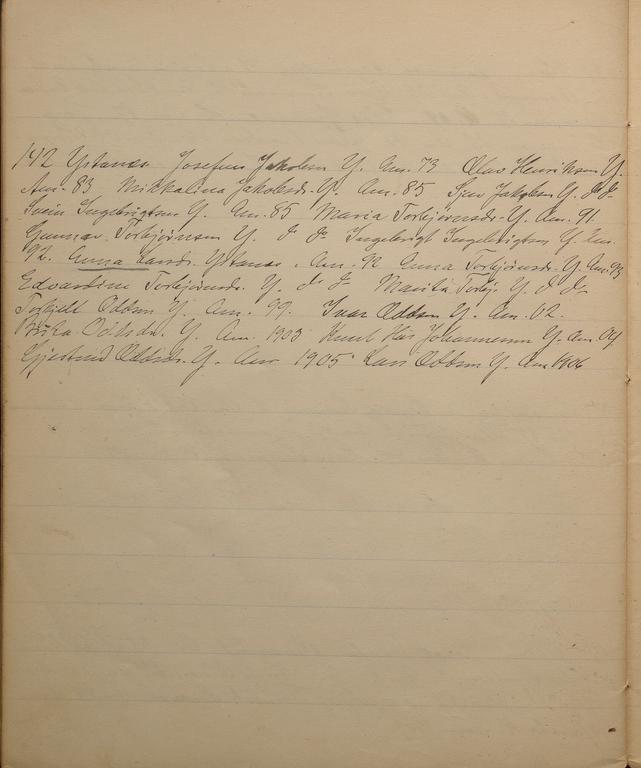 142 Ystanes Josefine Jakobsen Y. Am. 73 Olav Henriksen Y.
Am. 83 Mikkalina Jakobsd. Y. Am. 85 Sjur Jakobsen Y. do do
Svein Ingebrigtsen Y. Am. 85 Maria Torbjørnsd. Y. Am. 91.
Gunnar Torbjørnsen Y. do do Ingebrigt Ingebrigtsen Y. Am.
92. Anna Larsd. Ystanes. Am. 92 Anna Torbjørnsd. Y. Am. 93
Edvardine Torbjørnsd. Y. do do Marita Torbj. Y. do do
Torkjell Oddsen Y. Am. 99. Ivar Oddsen Y. Am. 02.
Brita Oddsd. Y. Am. 1903 Knut Johannessen Y. Am. 04
Gjertrud Oddsd. Y. Am. 1905 Lars Oddsen Y. Am 1906